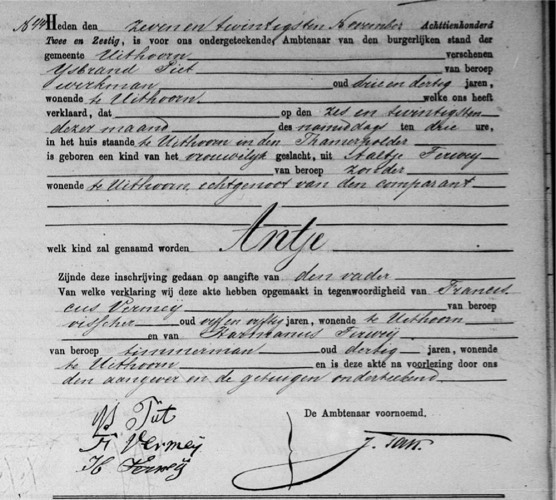 Heden den zeven en twintigsten November Achttienhonderd
Twee en Zestig, is voor ons ondergeteekende, Ambtenaar van den burgerlijken stand der
gemeente Uithoorn verschenen
IJsbrand Tut van beroep
werkman oud drie en dertig jaren,
wonende te Uithoorn welke ons heeft
verklaard, dat op den zes en twintigsten
dezer maand des namiddags ten drie ure,
in het huis staande te Uithoorn in den Thamerpolder
is geboren een kind van het vrouwelijk geslacht, uit Aaltje Ferwey
van beroep zonder
wonende te Uithoorn echtgenoot van den comparant
Antje
welk kind zal genaamd worden
Zijnde deze inschrijving gedaan op aangifte van den vader
Van welke verklaring wij deze akte hebben opgemaakt in tegenwoordigheid van Francis
cus Vermeij van beroep
visscher oud jaren, wonende te Uithoorn
en van Harmanus Ferweij
van beroep timmerman oud dertig jaren, wonende
te Uithoorn en is deze akte na voorlezing door ons
den aangever en de getuigen onderteekend
De Ambtenaar voornoemd,
Tut
F Vermeij
H Ferweij